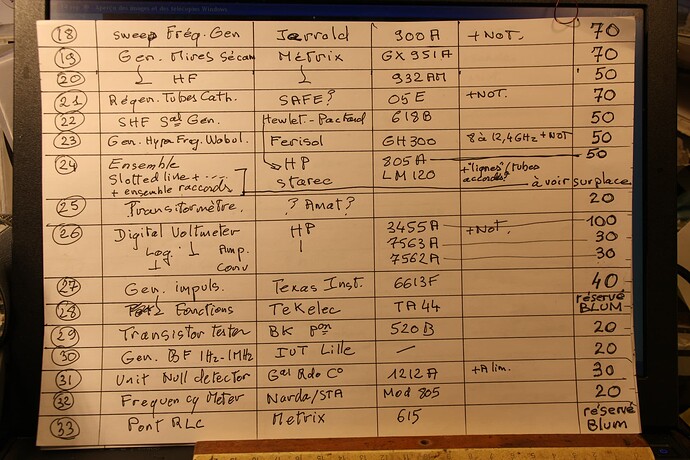 18 Sweep Fréq. Gen Jerrold 900A +NOT. 70
19 Gen. Mires Sécam Métrix GX951A 70
20 ↓ HF ↓ 932AM 50
21 Régen. Tubes Cath. SAFE? 05E +NOT. 70
22 SHF Sal Gen. Hewlet-Packard 618B 50
23 Gen. Hyper Freq. Wobul. Ferisol GH300 8 à 12,4GHz +NOT 50
24 Ensemble HP 805A 50
Slotted line + .... starec LM120 +"lignes"/tubes
+ ensemble raccords accordés? à voir sur place
25 Transitormètre. ? Amat? 20
26 Digital Voltmeter HP 3455A +Not. 100
Log. ↓ Amp. 7563A 30
Conv 7562A 30
27 Gén. impuls. Texas Inst. 6613F 40
28 Fonctions TeKelec TA44 réservé BLUM
29 Transistor tester BK Pon 520B 20
30 Gen. BF 1Hz-1MHz IUT Lille — 20
31 Unit Null detector Gal Rdo Co 1212A +Alim. 30
32 Frequency Meter Narda/STA Mod 805 20
33 Pont RLC Metrix 615 réservé Blum